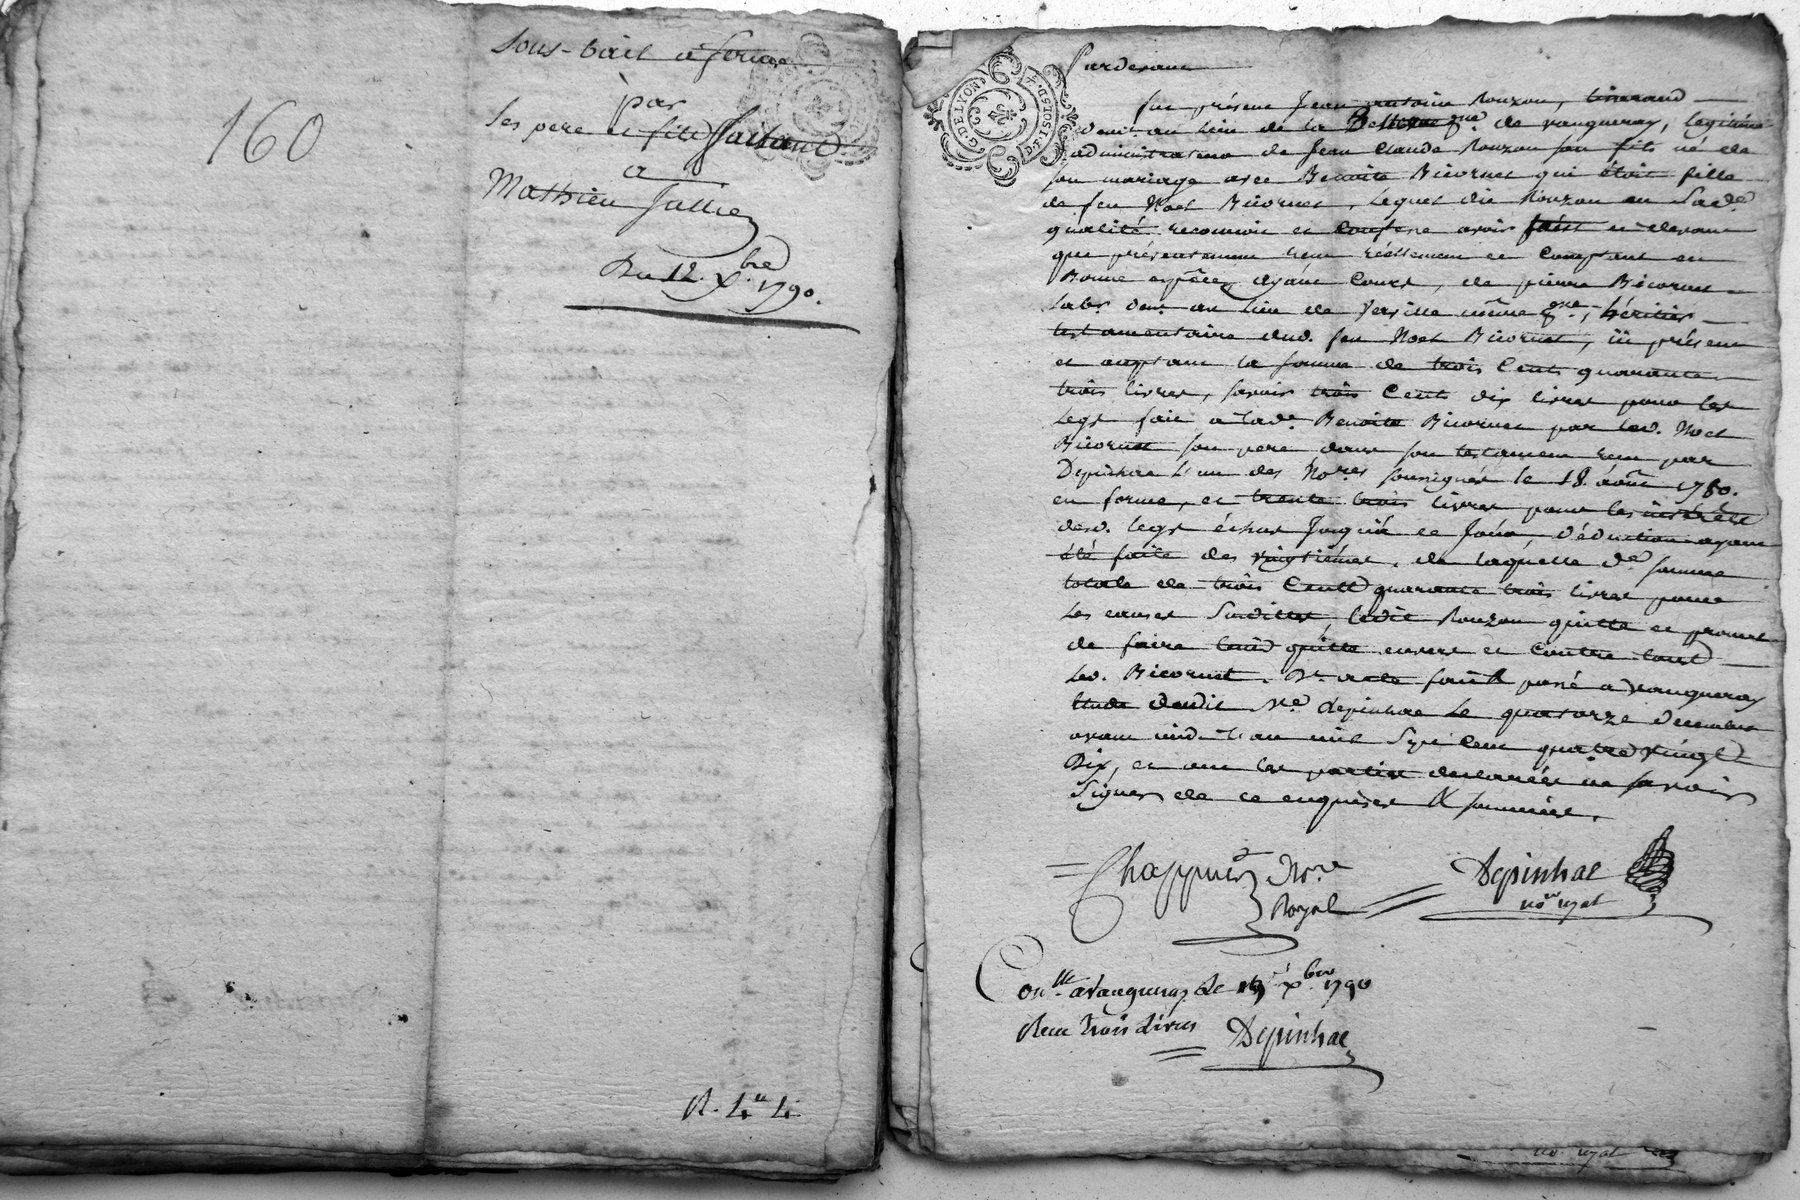 160
Sous-bail a ferme
par
Les pere et fils
a
Mathieu
Du 12. Xbre 1790.
R. 4.
G. DE LYON
Pardevant
fut présent Jean antoine Rouzon, tisserand
demt. au lieu de la de vaugneray, legitime
administrateur de Jean Claude Rouzon son fils né de
son mariage avec Benoite Bicornet qui étoit fille
de feu Noel Bicornet, lequel dit Rouzon en sade.
qualité reconnoit et confesse avoir et devant
que présentement reçu réellement et comptant en
Bonne espéce ayant cours, de pierre Bicornet
labr. demt. au lieu de même, héritier
testamentaire dud. feu Noel Bicornet, ici présent
et acceptant la somme de trois Cents quarante
trois livres, savoir trois Cents dix livres pour les
legs fait a lade. Benoite Bicornet par led. Noel
Bicornet son pere dans son testament reçu par
Depinhac l'un des Nores. soussignés le 18. août 1780.
en forme, et trente trois livres pour les intérêts
desd. legs échus Jusqu'à ce Jour, déduction ayant
été faite des vingtiémes, de laquelle de. somme
totale de trois Cents quarante trois livres pour
les causes susdittes, ledit Rouzon quitte et promet
de faire tenir quitte envers et contre tous
led. Bicornet. Dt. acte fait & passé a vaugneray
étude dudit Me. depinhac le quatorze decembre
avant midi l'an mil sept cent quatre vingt
Dix, et ont les parties declarées ne savoir
signer de ce enquises & sommées.
Chappuis Nore. Depinhac
Royal nore royal
Conlle. a Vaugneray le Xbre 1790
Reçu trois Livres Depinhac
no. royal